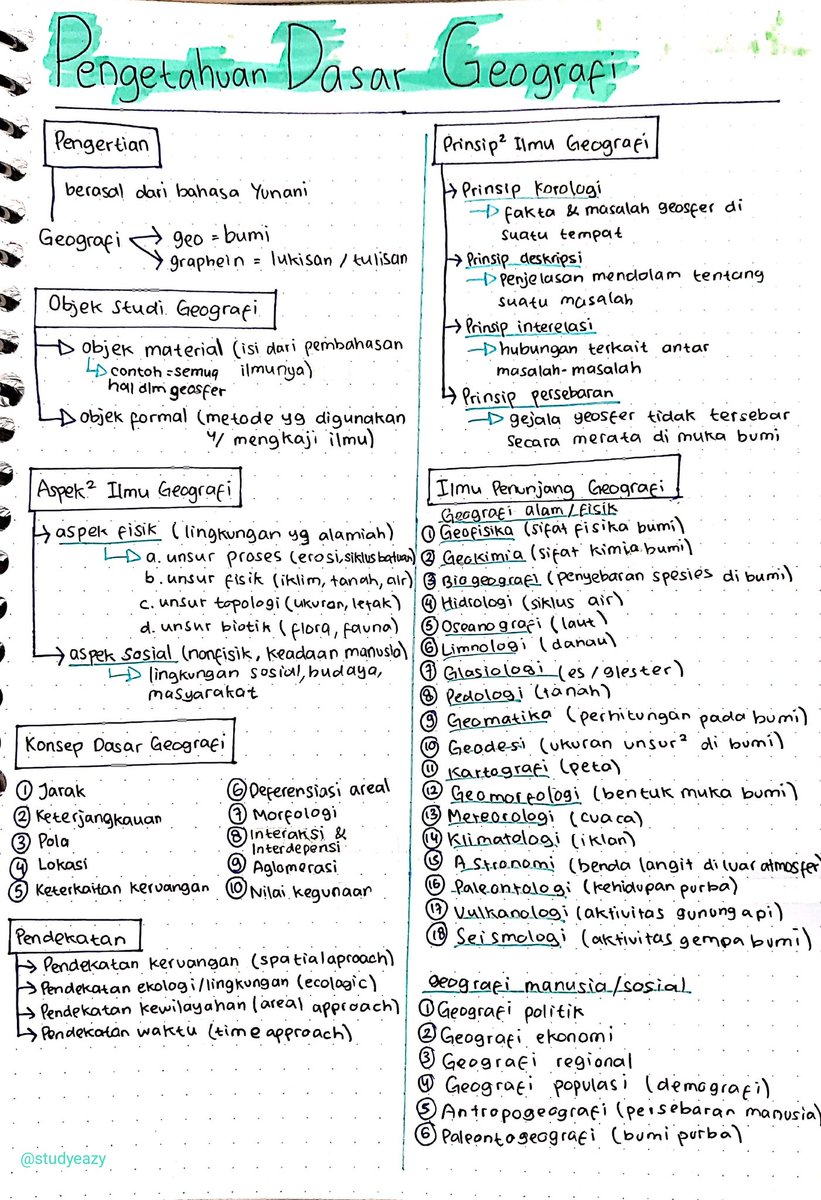 Pengetahuan Dasar Geografi
Pengertian
berasal dari bahasa Yunani
Geografi → geo = bumi
→ graphein = lukisan / tulisan
Objek Studi Geografi
→ Objek material (isi dari pembahasan
ilmunya)
↳ contoh = semua
hal dlm geosfer
→ Objek formal (metode yg digunakan
u/ mengkaji ilmu)
Aspek² Ilmu Geografi
→ aspek fisik (lingkungan yg alamiah)
↳ a. unsur proses (erosi, siklus batuan)
b. unsur fisik (iklim, tanah, air)
c. unsur topologi (ukuran, letak)
d. unsur biotik (flora, fauna)
→ aspek sosial (nonfisik, keadaan manusia)
↳ lingkungan sosial, budaya,
masyarakat
Konsep Dasar Geografi
① Jarak
② Keterjangkauan
③ Pola
④ Lokasi
⑤ Keterkaitan keruangan
⑥ Deferensiasi areal
⑦ Morfologi
⑧ Interaksi &
Interdepensi
⑨ Aglomerasi
⑩ Nilai kegunaan
Pendekatan
→ Pendekatan keruangan (spatial aproach)
→ Pendekatan ekologi/lingkungan (ecologic)
→ Pendekatan kewilayahan (areal approach)
→ Pendekatan waktu (time approach)
@studyeazy
Prinsip² Ilmu Geografi
→ Prinsip korologi
→ fakta & masalah geosfer di
suatu tempat
→ Prinsip deskripsi
→ penjelasan mendalam tentang
suatu masalah
→ Prinsip interelasi
→ hubungan terkait antar
masalah-masalah
→ Prinsip persebaran
→ gejala geosfer tidak tersebar
secara merata di muka bumi
Ilmu Penunjang Geografi
Geografi alam/fisik
① Geofisika (sifat fisika bumi)
② Geokimia (sifat kimia bumi)
③ Biogeografi (penyebaran spesies di bumi)
④ Hidrologi (siklus air)
⑤ Oseanografi (laut)
⑥ Limnologi (danau)
⑦ Glasiologi (es/glester)
⑧ Pedologi (tanah)
⑨ Geomatika (perhitungan pada bumi)
⑩ Geodesi (ukuran unsur² di bumi)
⑪ Kartografi (peta)
⑫ Geomorfologi (bentuk muka bumi)
⑬ Meteorologi (cuaca)
⑭ Klimatologi (iklan)
⑮ Astronomi (benda langit di luar atmosfer)
⑯ Paleontologi (kehidupan purba)
⑰ Vulkanologi (aktivitas gunung api)
⑱ Seismologi (aktivitas gempa bumi)
geografi manusia/sosial
① Geografi politik
② Geografi ekonomi
③ Geografi regional
④ Geografi populasi (demografi)
⑤ Antropogeografi (persebaran manusia)
⑥ Paleontogeografi (bumi purba)